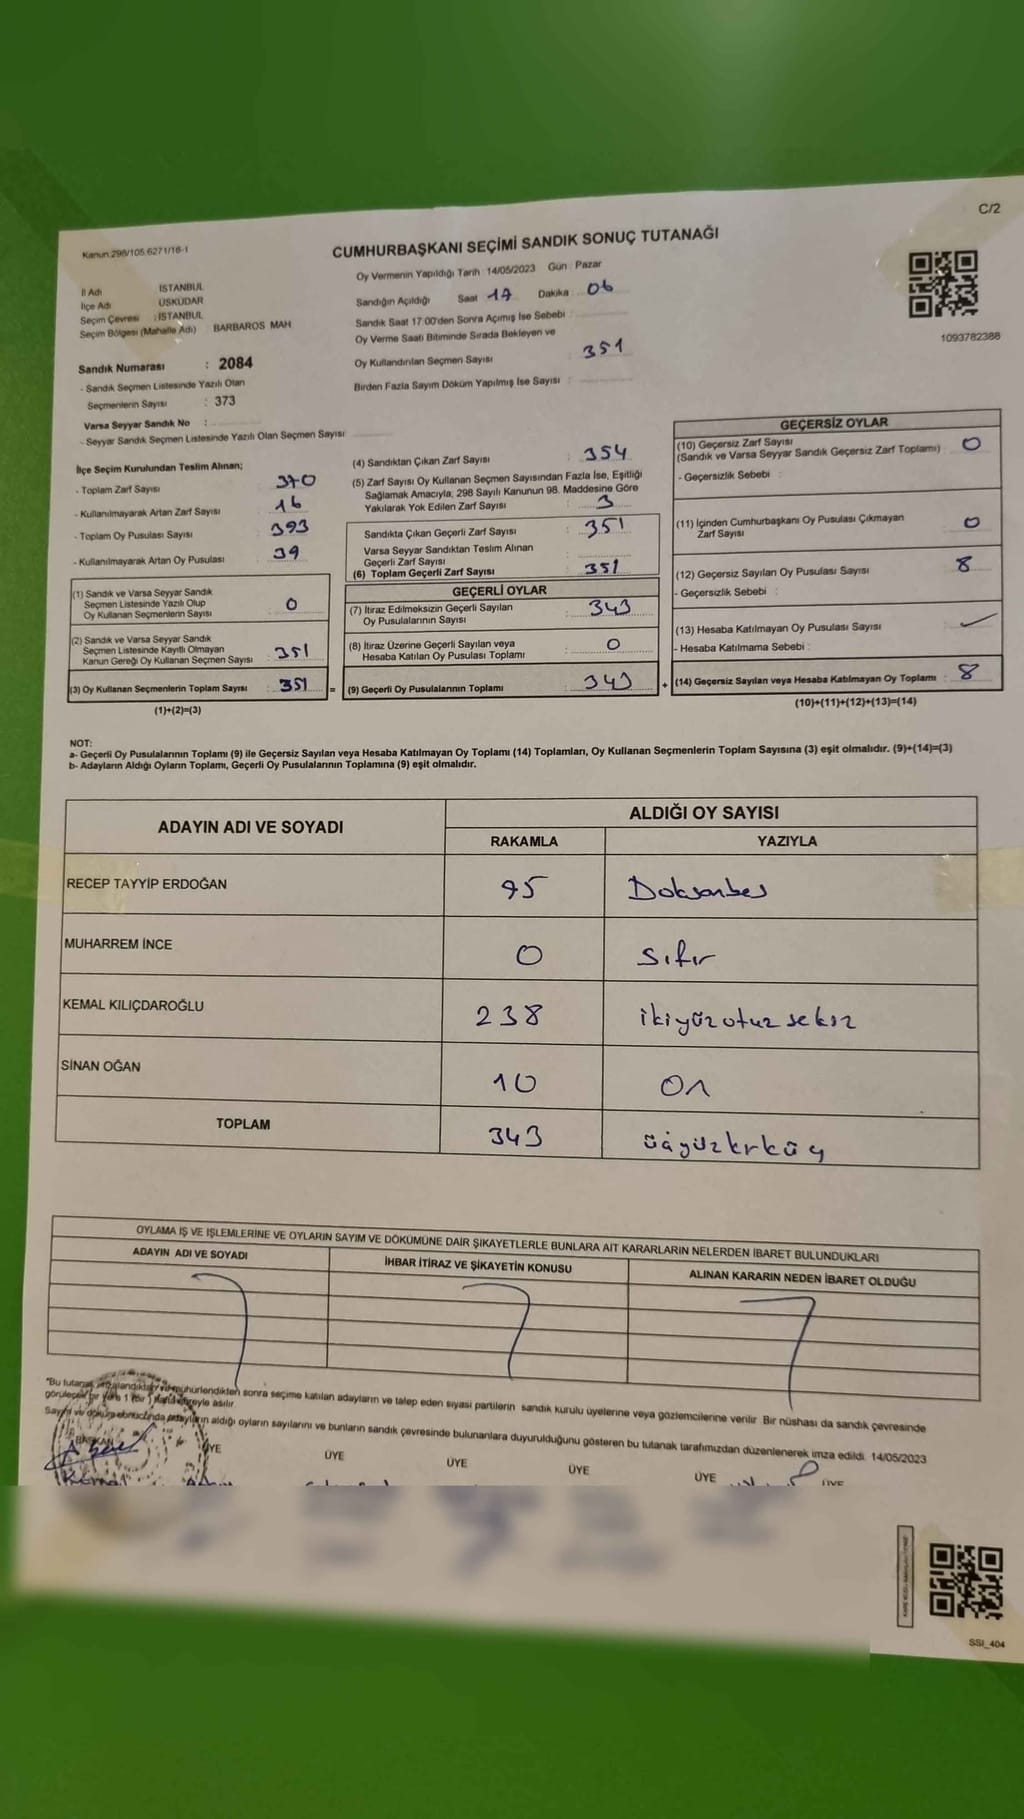 C/2
Kanun:298/105.6271/16-1
CUMHURBAŞKANI SEÇİMİ SANDIK SONUÇ TUTANAĞI
İl Adı İSTANBUL
İlçe Adı ÜSKÜDAR
Seçim Çevresi : İSTANBUL
Seçim Bölgesi (Mahalle Adı) BARBAROS MAH
Sandık Numarası : 2084
- Sandık Seçmen Listesinde Yazılı Olan
Seçmenlerin Sayısı : 373
Varsa Seyyar Sandık No :
- Seyyar Sandık Seçmen Listesinde Yazılı Olan Seçmen Sayısı
Oy Vermenin Yapıldığı Tarih 14/05/2023 Gün : Pazar
Sandığın Açıldığı Saat 17 Dakika 06
Sandık Saat 17.00'den Sonra Açımış İse Sebebi :
Oy Verme Saati Bitiminde Sırada Bekleyen ve
Oy Kullandırılan Seçmen Sayısı : 351
Birden Fazla Sayım Döküm Yapılmış İse Sayısı :
1093782388
İlçe Seçim Kurulundan Teslim Alınan;
- Toplam Zarf Sayısı : 370
- Kullanılmayarak Artan Zarf Sayısı : 16
- Toplam Oy Pusulası Sayısı : 393
- Kullanılmayarak Artan Oy Pusulası : 39
(1) Sandık ve Varsa Seyyar Sandık
Seçmen Listesinde Yazılı Olup
Oy Kullanan Seçmenlerin Sayısı : 0
(2) Sandık ve Varsa Seyyar Sandık
Seçmen Listesinde Kayıtlı Olmayan
Kanun Gereği Oy Kullanan Seçmen Sayısı : 351
(3) Oy Kullanan Seçmenlerin Toplam Sayısı : 351
(1)+(2)=(3)
(4) Sandıktan Çıkan Zarf Sayısı : 354
(5) Zarf Sayısı Oy Kullanan Seçmen Sayısından Fazla İse, Eşitliği
Sağlamak Amacıyla, 298 Sayılı Kanunun 98. Maddesine Göre
Yakılarak Yok Edilen Zarf Sayısı : 3
Sandıkta Çıkan Geçerli Zarf Sayısı : 351
Varsa Seyyar Sandıktan Teslim Alınan
Geçerli Zarf Sayısı :
(6) Toplam Geçerli Zarf Sayısı : 351
GEÇERLİ OYLAR
(7) İtiraz Edilmeksizin Geçerli Sayılan
Oy Pusulalarının Sayısı : 343
(8) İtiraz Üzerine Geçerli Sayılan veya
Hesaba Katılan Oy Pusulası Toplamı : 0
= (9) Geçerli Oy Pusulalarının Toplamı : 343
GEÇERSİZ OYLAR
(10) Geçersiz Zarf Sayısı
(Sandık ve Varsa Seyyar Sandık Geçersiz Zarf Toplamı) : 0
- Geçersizlik Sebebi :
(11) İçinden Cumhurbaşkanı Oy Pusulası Çıkmayan
Zarf Sayısı : 0
(12) Geçersiz Sayılan Oy Pusulası Sayısı : 8
- Geçersizlik Sebebi :
(13) Hesaba Katılmayan Oy Pusulası Sayısı :
- Hesaba Katılmama Sebebi :
+ (14) Geçersiz Sayılan veya Hesaba Katılmayan Oy Toplamı : 8
(10)+(11)+(12)+(13)=(14)
NOT:
a- Geçerli Oy Pusulalarının Toplamı (9) ile Geçersiz Sayılan veya Hesaba Katılmayan Oy Toplamı (14) Toplamları, Oy Kullanan Seçmenlerin Toplam Sayısına (3) eşit olmalıdır. (9)+(14)=(3)
b- Adayların Aldığı Oyların Toplamı, Geçerli Oy Pusulalarının Toplamına (9) eşit olmalıdır.
ADAYIN ADI VE SOYADI ALDIĞI OY SAYISI
RAKAMLA YAZIYLA
RECEP TAYYİP ERDOĞAN 95 Doksanbeş
MUHARREM İNCE 0 sıfır
KEMAL KILIÇDAROĞLU 238 ikiyüzotuzsekiz
SİNAN OĞAN 10 On
TOPLAM 343 üçyüzkırküç
OYLAMA İŞ VE İŞLEMLERİNE VE OYLARIN SAYIM VE DÖKÜMÜNE DAİR ŞİKAYETLERLE BUNLARA AİT KARARLARIN NELERDEN İBARET BULUNDUKLARI
ADAYIN ADI VE SOYADI İHBAR İTİRAZ VE ŞİKAYETİN KONUSU ALINAN KARARIN NEDEN İBARET OLDUĞU
"Bu tutanak mühürlendikten sonra seçime katılan adayların ve talep eden siyasi partilerin sandık kurulu üyelerine veya gözlemcilerine verilir. Bir nüshası da sandık çevresinde
görülecek bir yere 1 (bir) asılır.
Sayım ve döküm sonucunda adayların aldığı oyların sayılarını ve bunların sandık çevresinde bulunanlara duyurulduğunu gösteren bu tutanak tarafımızdan düzenlenerek imza edildi. 14/05/2023
BAŞKAN ÜYE ÜYE ÜYE ÜYE ÜYE ÜYE
SSI_404